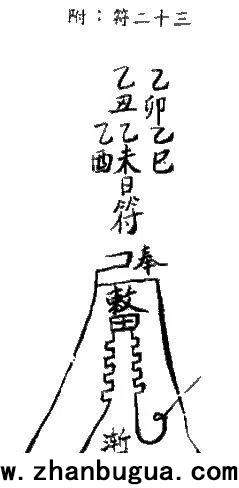 附：符二十三
乙卯乙巳
乙丑乙未日符
乙酉
奉
www.zhanbugua.com